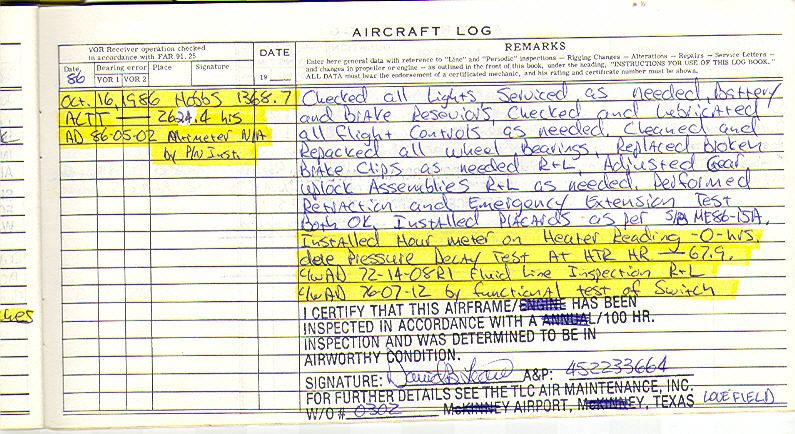 AIRCRAFT LOG
VOR Receiver operation checked
in accordance with FAR 91.25
Date, Bearing error Place Signature
VOR 1 VOR 2
86
DATE
19
REMARKS
Enter here general data with reference to "Line" and "Periodic" inspections — Rigging Changes — Alterations — Repairs — Service Letters —
and changes in propeller or engine — as outlined in the front of this book, under the heading, "INSTRUCTIONS FOR USE OF THIS LOG BOOK."
ALL DATA must bear the endorsement of a certificated mechanic, and his rating and certificate number must be shown.
Oct. 16, 1986 Hobbs 1368.7
ACTT — 2624.4 hrs
AD 86-05-02 Altimeter N/A
by P/N Inst.
Checked all Lights, Serviced as needed, Battery
and Brake Resevoirs, Checked and Lubricated
all flight Controls as needed, Cleaned and
Repacked all wheel Bearings, Replaced Broken
Brake Clips as needed R+L, Adjusted Gear
Uplock Assemblies R+L as needed, Performed
Retraction and Emergency Extension Test
Both OK, Installed Placards as per ME86-15A,
Installed Hour meter on Heater Reading -0- hrs.
Pressure Decay Test At HTR HR — 67.9,
c/w AD 72-14-08R1 Fluid Line Inspection R+L
c/w AD 76-07-12 by functional test of Switch
I CERTIFY THAT THIS AIRFRAME/ENGINE HAS BEEN
INSPECTED IN ACCORDANCE WITH A ANNUAL/100 HR.
INSPECTION AND WAS DETERMINED TO BE IN
AIRWORTHY CONDITION.
SIGNATURE: A&P: 452233664
FOR FURTHER DETAILS SEE THE TLC AIR MAINTENANCE, INC.
W/O # 0302 McKINNEY AIRPORT, McKINNEY, TEXAS LOVE FIELD